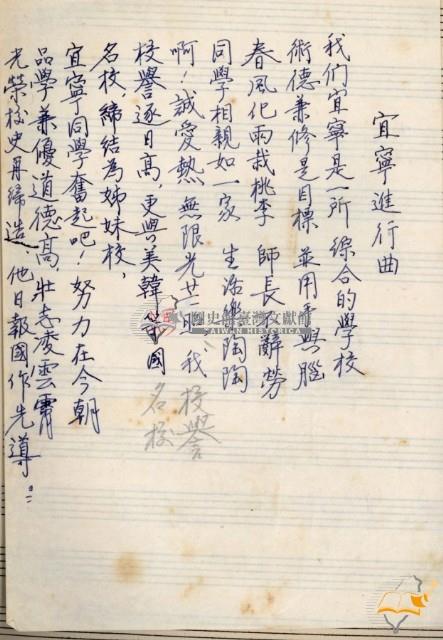 宜寧進行曲
我们宜寧是一所 綜合的學校
術德兼修是目標 並用手與腦
春風化雨栽桃李 師長不辭勞
同學相親如一家 生活樂陶陶
啊！誠愛熱 無限光 我 校譽
校譽逐日高，更與美韓等國 名校
名校，締結為姊妹校，
宜寧同學奮起吧！努力在今朝
品學兼優道德高，壯志凌雲霄
光榮校史再締造、他日報國作先導。
國史館臺灣文獻館
TAIWAN HISTORICA